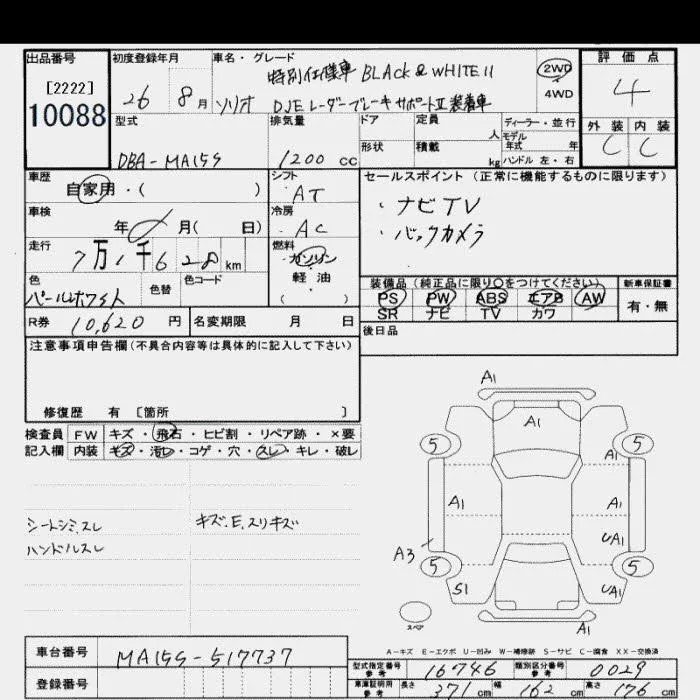 出品番号 初度登録年月 車名・グレード 評価点
[2222] 特別仕様車 BLACK & WHITE II 2WD
10088 26 8月 ソリオ DJE レーダーブレーキサポートII 装着車 4WD 4
型式 排気量 ドア 定員 人 ディーラー・並行 外装 内装
モデル年式 年
DBA-MA15S 1200 cc 形状 積載 kg ハンドル 左・右 C C
車歴 シフト セールスポイント (正常に機能するものに限ります)
自家用・( ) AT
・ナビTV
車検 冷房
年 月( 日) AC ・バックカメラ
走行 燃料
7万1千628km ガソリン
軽油
( )
色 色替 色コード 装備品(純正品に限り○をつけてください) 新車保証書
パールホワイト PS PW ABS エアB AW 有・無
SR ナビ TV カワ
R券 10,620 円 名変期限 月 日
後日品
注意事項申告欄(不具合内容等は具体的に記入して下さい)
修復歴 有 [箇所 ]
検査員 FW キズ・飛石・ヒビ割・リペア跡・×要
記入欄 内装 キズ・汚レ・コゲ・穴・スレ・キレ・破レ
シートシミ、スレ
ハンドルスレ
キズ、E、スリキズ
A1
A1
5 5
A1
A1 A1
UA1
A3
5 5
S1 UA1
スペア
A1
A-キズ E-エクボ U-凹み W-補修跡 S-サビ C-腐食 XX-交換済
車台番号 MA15S-517737
登録番号
型式指定番号 参考 16746 類別区分番号 参考 0029
車庫証明用 参考 長さ 371cm 幅 162cm 高さ 176cm